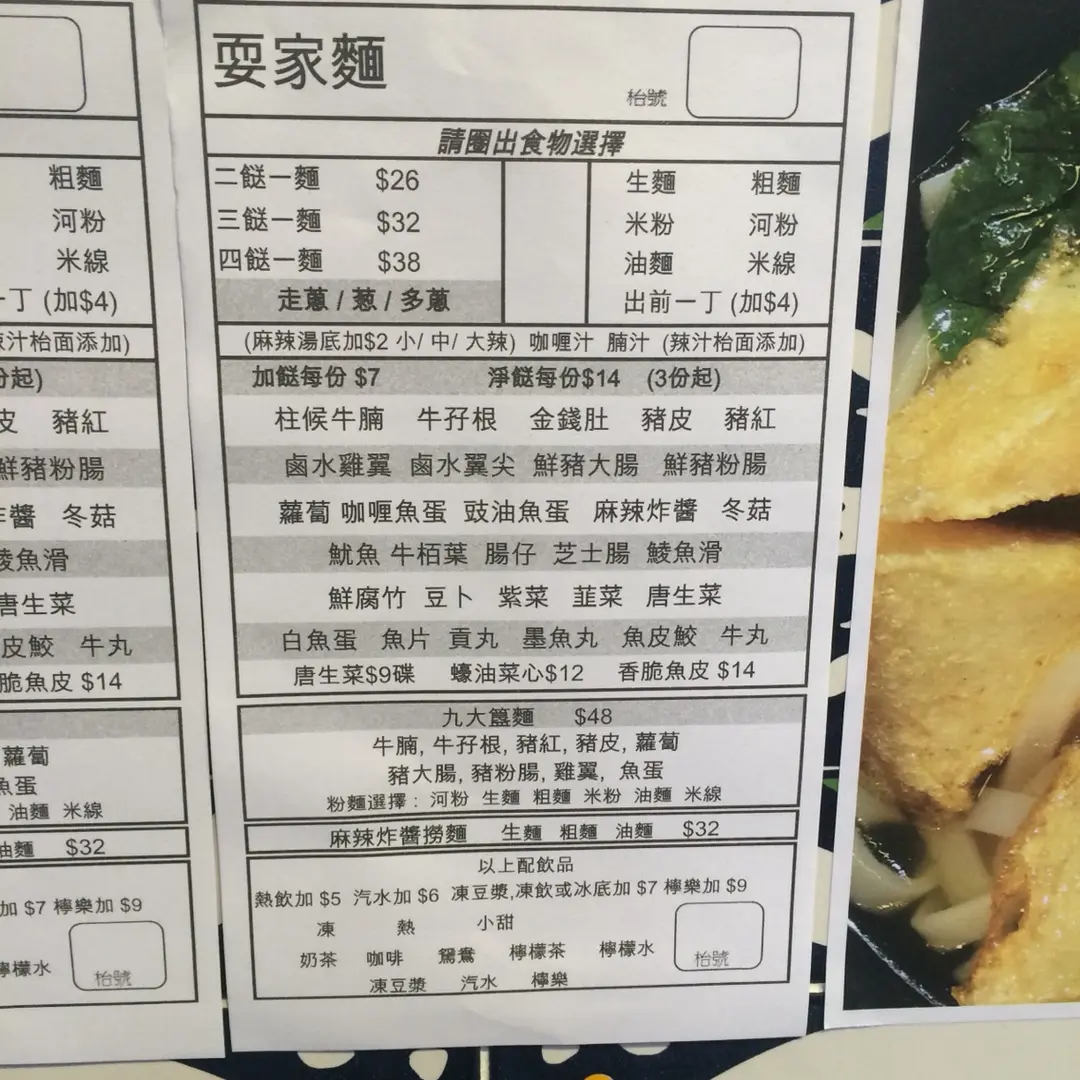 耍家麵
枱號
請圈出食物選擇
二餸一麵 $26
三餸一麵 $32
四餸一麵 $38
走蔥 / 葱 / 多蔥
生麵 粗麵
米粉 河粉
油麵 米線
出前一丁 (加$4)
(麻辣湯底加$2 小/ 中/ 大辣) 咖喱汁 腩汁 (辣汁枱面添加)
加餸每份 $7 淨餸每份$14 (3份起)
柱候牛腩 牛孖根 金錢肚 豬皮 豬紅
鹵水雞翼 鹵水翼尖 鮮豬大腸 鮮豬粉腸
蘿蔔 咖喱魚蛋 豉油魚蛋 麻辣炸醬 冬菇
魷魚 牛栢葉 腸仔 芝士腸 鯪魚滑
鮮腐竹 豆卜 紫菜 韮菜 唐生菜
白魚蛋 魚片 貢丸 墨魚丸 魚皮鮫 牛丸
唐生菜$9碟 蠔油菜心$12 香脆魚皮 $14
九大簋麵 $48
牛腩, 牛孖根, 豬紅, 豬皮, 蘿蔔
豬大腸, 豬粉腸, 雞翼, 魚蛋
粉麵選擇 : 河粉 生麵 粗麵 米粉 油麵 米線
麻辣炸醬撈麵 生麵 粗麵 油麵 $32
以上配飲品
熱飲加 $5 汽水加 $6 凍豆漿,凍飲或冰底加 $7 檸樂加 $9
凍 熱 小甜
奶茶 咖啡 鴛鴦 檸檬茶 檸檬水
凍豆漿 汽水 檸樂
枱號
粗麵
河粉
米線
一丁 (加$4)
辣汁枱面添加)
份起)
皮 豬紅
鮮豬粉腸
炸醬 冬菇
鯪魚滑
唐生菜
皮鮫 牛丸
脆魚皮 $14
蘿蔔
魚蛋
油麵 米線
油麵 $32
加 $7 檸樂加 $9
檸檬水
枱號